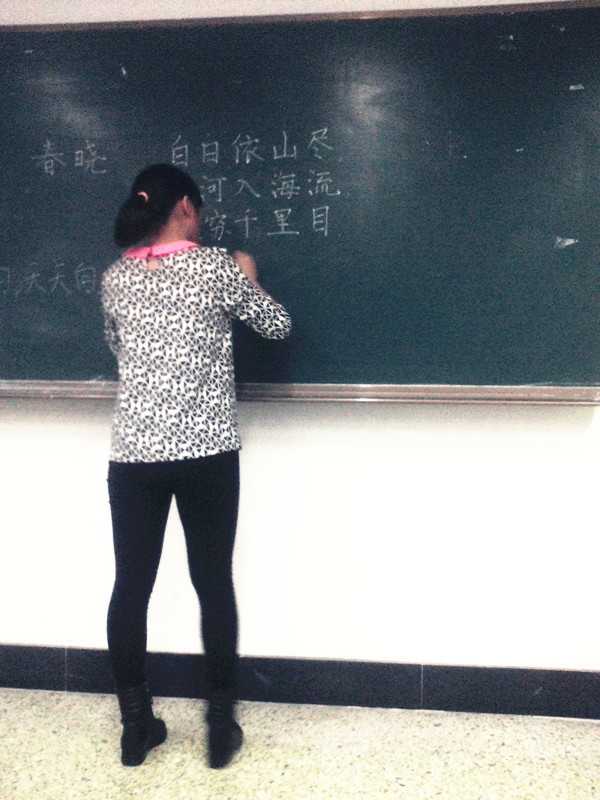 春晓 白日依山尽
河入海流
穷千里目
天天向